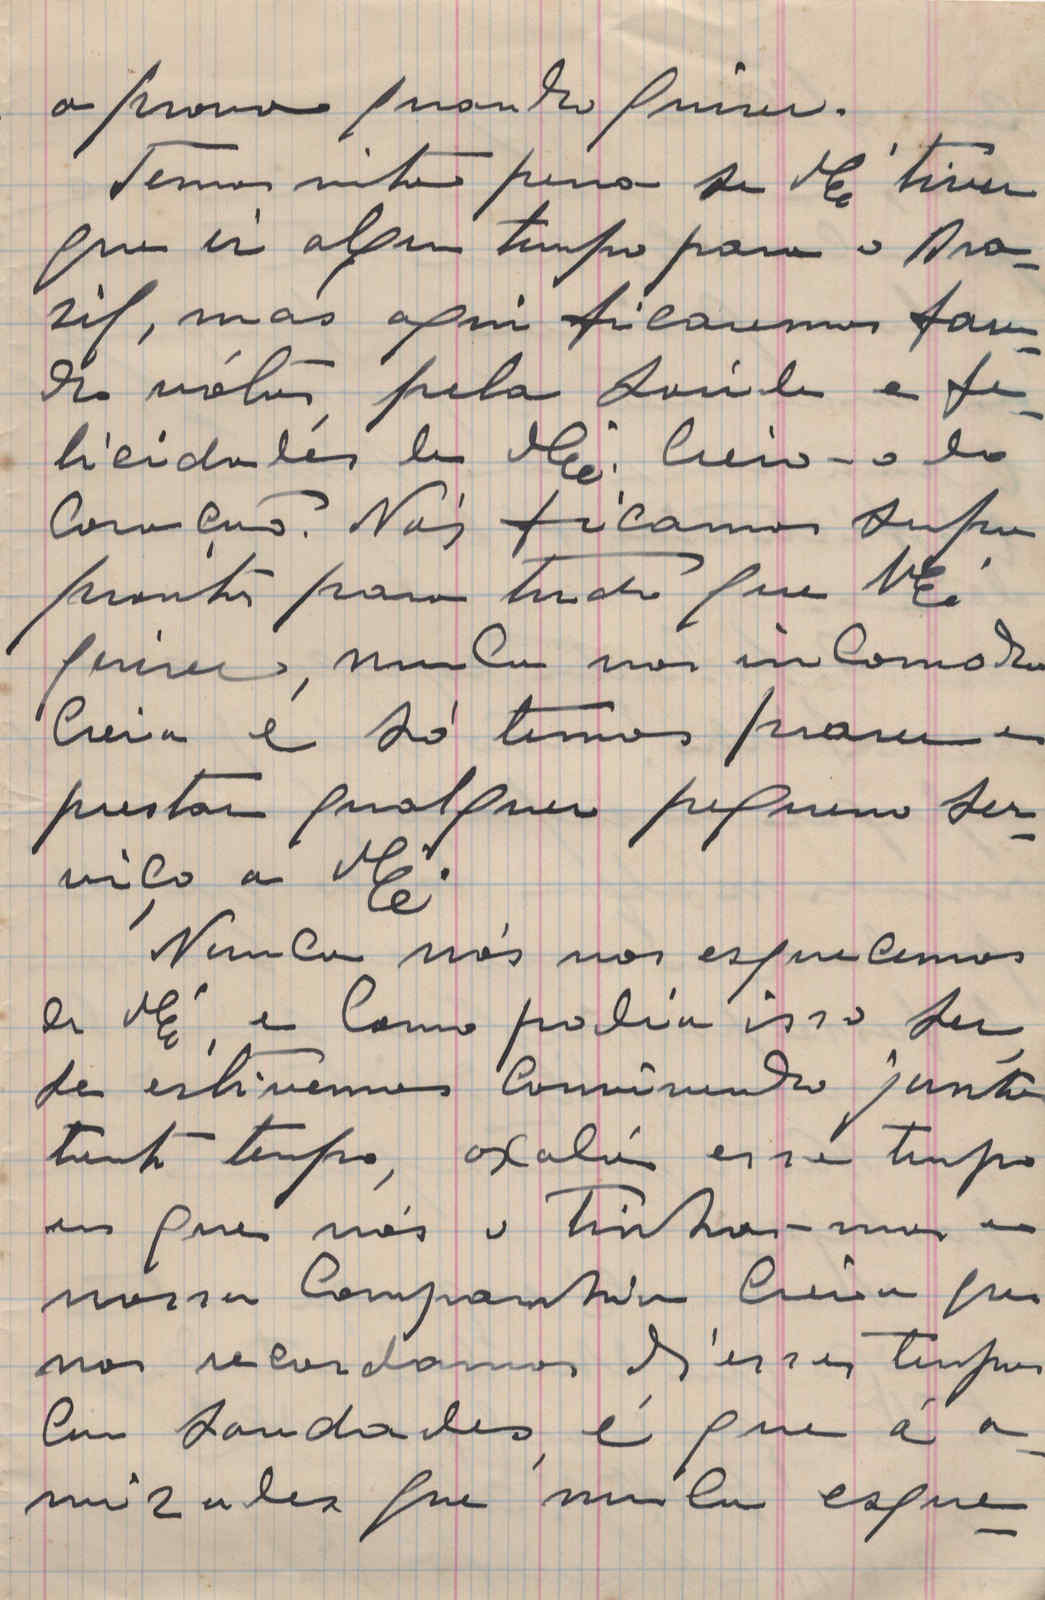 a prova quando quiser.
Temos muita pena se V.Ex.ª tiver
que ir algum tempo para o Bra-
sil, mas aqui ficaremos fasen-
do vótos, pela saúde e fe-
licidades de V.Ex.ª. Creia-o do
coração. Nós ficamos sempre
prontos para tudo que V.Ex.ª
quiser, nunca nos incomoda
creia e só temos praser em
prestar qualquer pequeno ser-
viço a V.Ex.ª
Nunca nós nos esquecemos
de V.Ex.ª, e como podia isso ser,
se estivemos convivendo junto
tanto tempo, oxalá esse tempo
em que nós o tinha-mos em
nossa companhia creia que
nos recordamos d'esses tempos
com saudades, é que á a-
mizades que nunca esque-